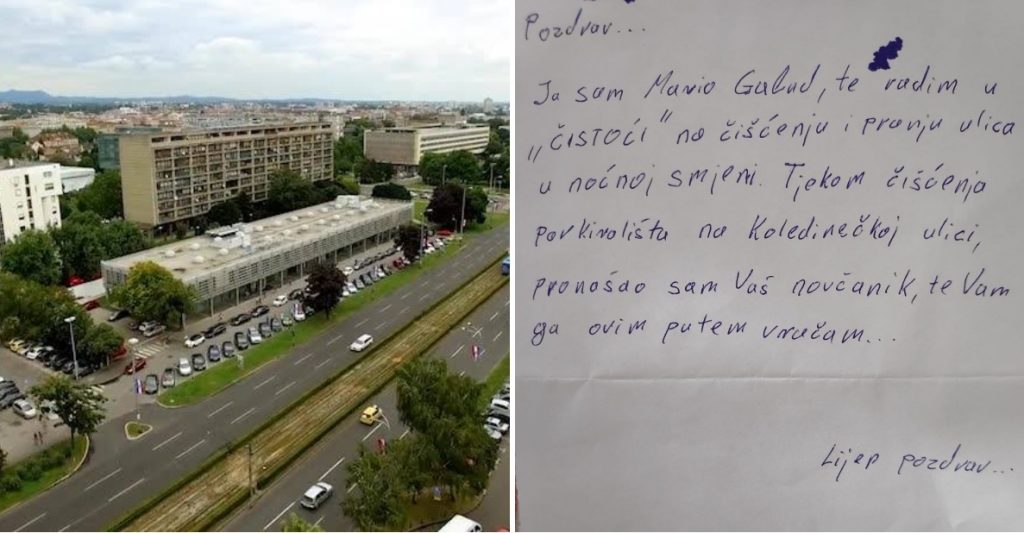 Pozdrav...
Ja sam Mario Galud, te radim u
„ČISTOĆI" na čišćenju i pranju ulica
u noćnoj smjeni. Tjekom čišćenja
parkirališta na Koledinečkoj ulici,
pronašao sam Vaš novčanik, te Vam
ga ovim putem vračam...
Lijep pozdrav...